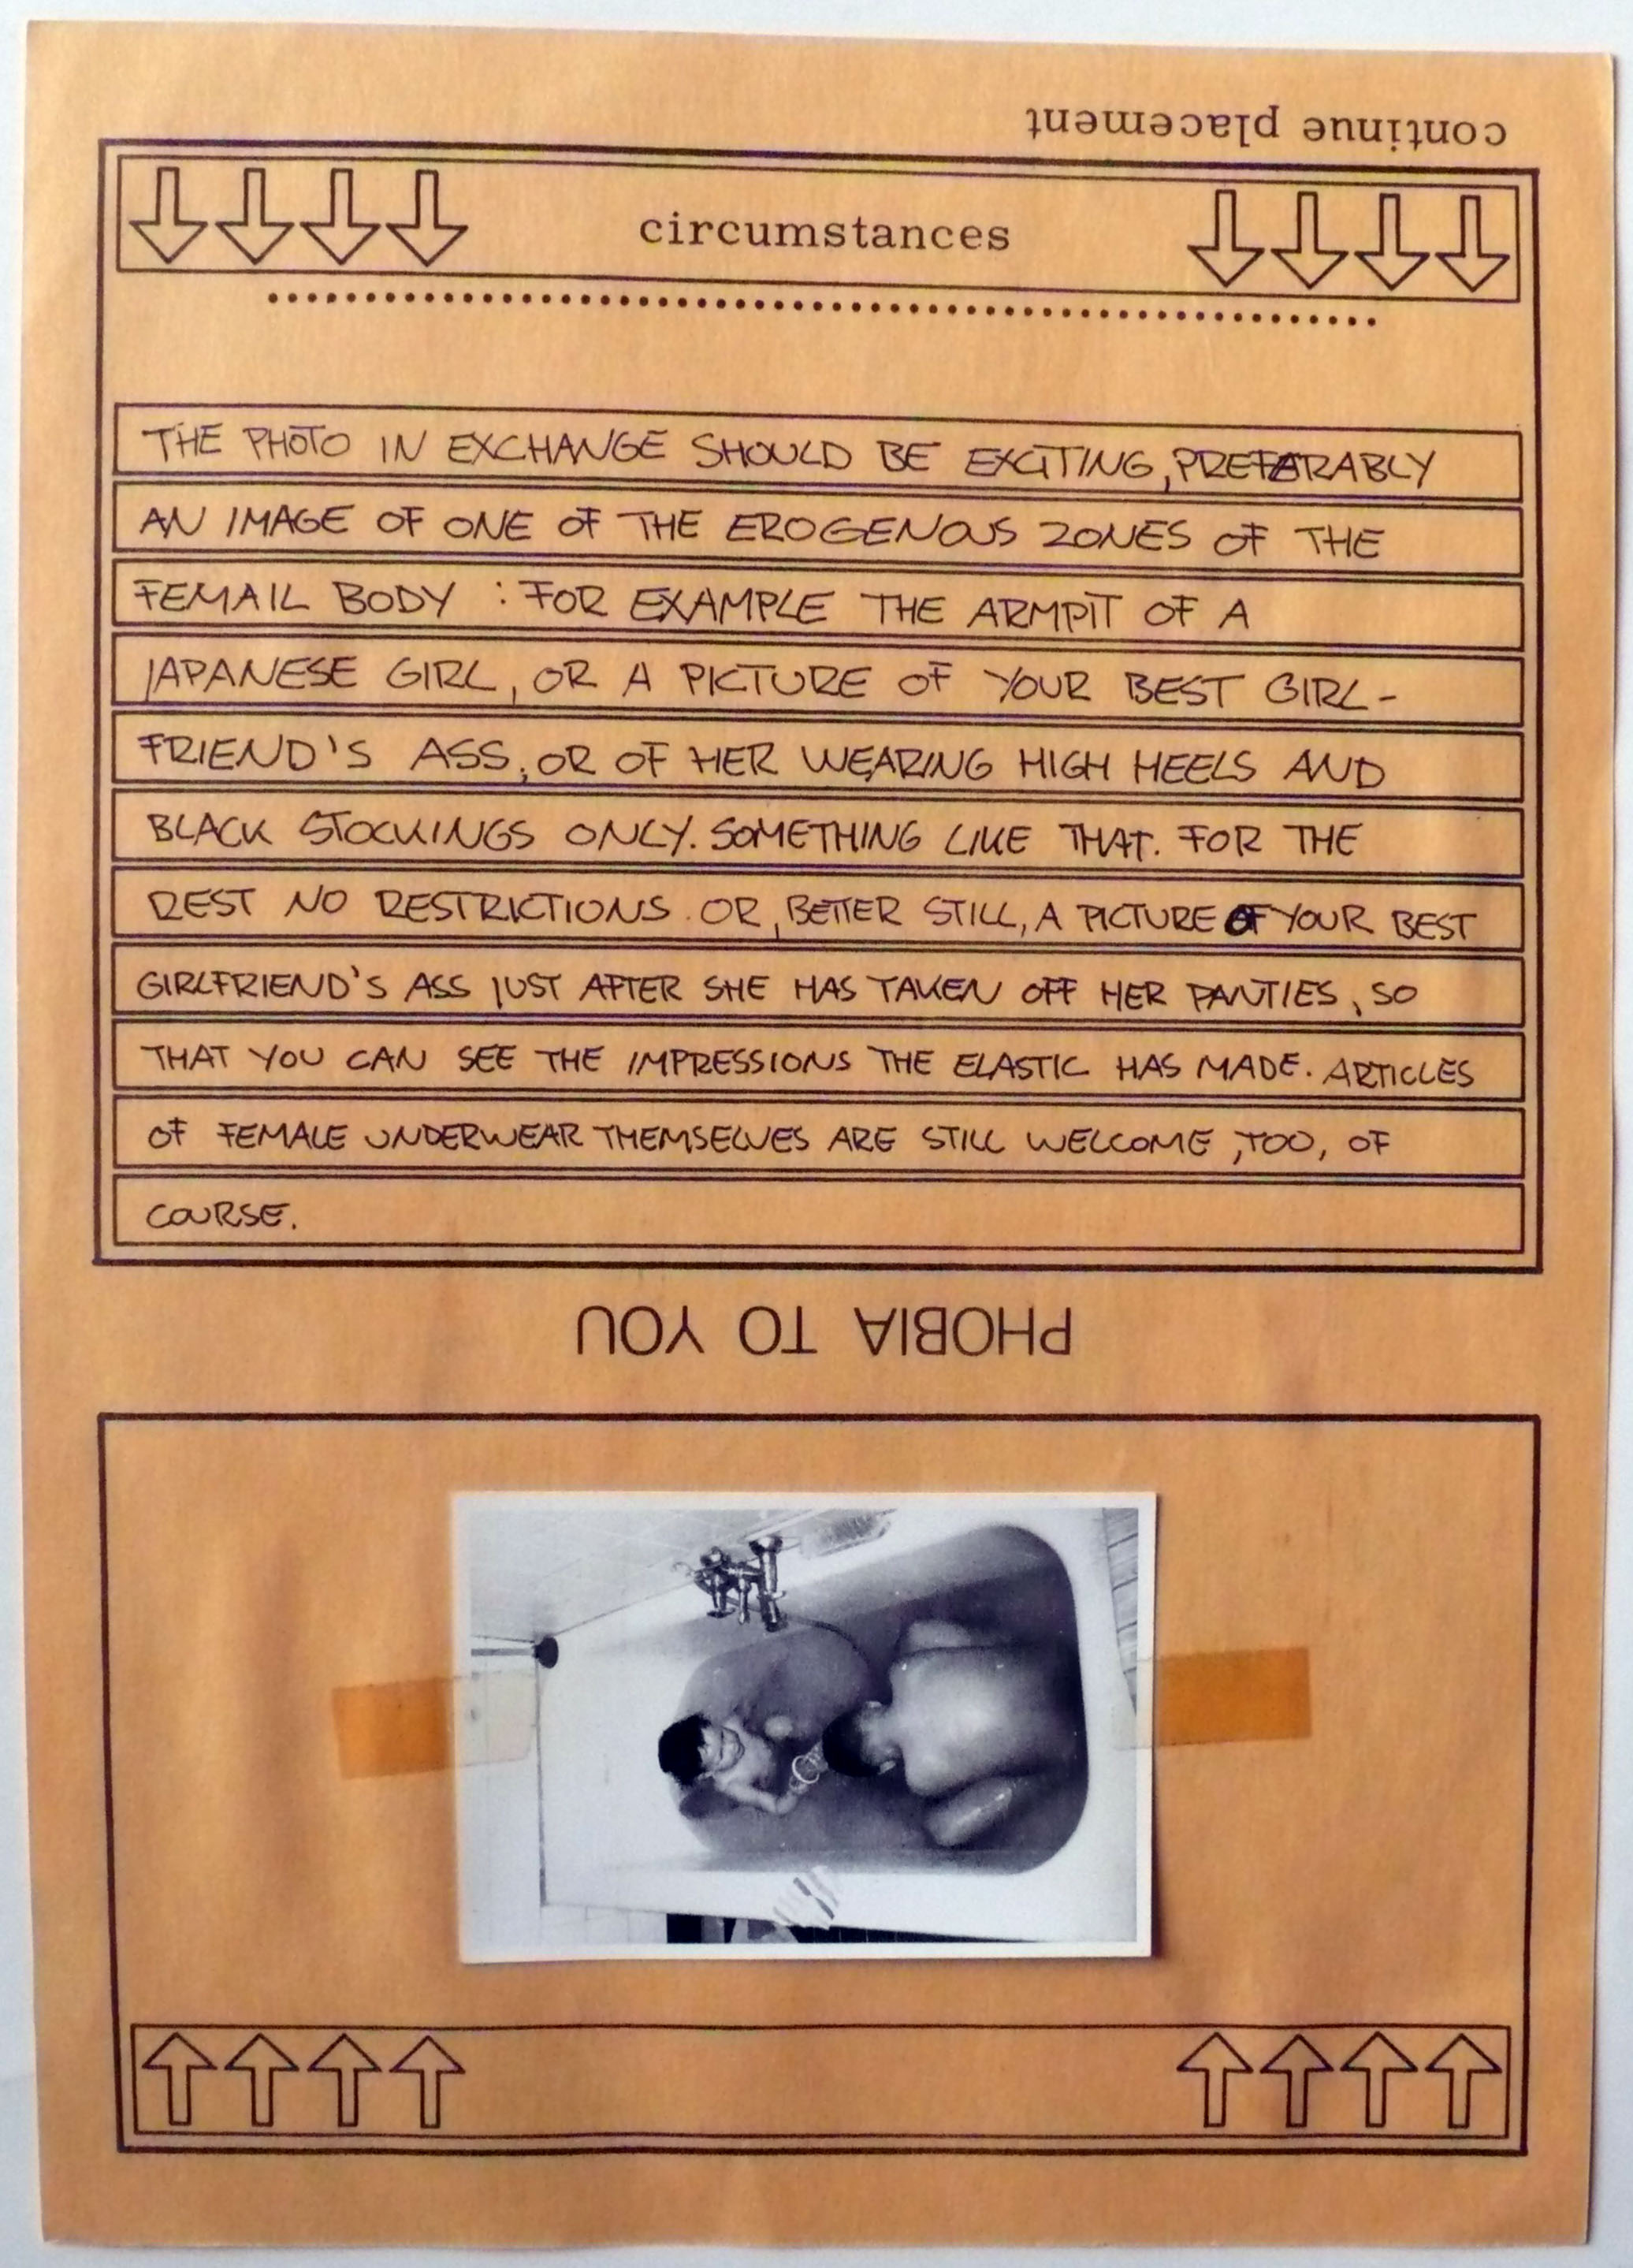 continue placement
circumstances
THE PHOTO IN EXCHANGE SHOULD BE EXCITING, PREFERABLY
AN IMAGE OF ONE OF THE EROGENOUS ZONES OF THE
FEMAIL BODY : FOR EXAMPLE THE ARMPIT OF A
JAPANESE GIRL, OR A PICTURE OF YOUR BEST GIRL-
FRIEND'S ASS, OR OF HER WEARING HIGH HEELS AND
BLACK STOCKINGS ONLY. SOMETHING LIKE THAT. FOR THE
REST NO RESTRICTIONS. OR, BETTER STILL, A PICTURE OF YOUR BEST
GIRLFRIEND'S ASS JUST AFTER SHE HAS TAKEN OFF HER PANTIES, SO
THAT YOU CAN SEE THE IMPRESSIONS THE ELASTIC HAS MADE. ARTICLES
OF FEMALE UNDERWEAR THEMSELVES ARE STILL WELCOME, TOO, OF
COURSE.
PHOBIA TO YOU